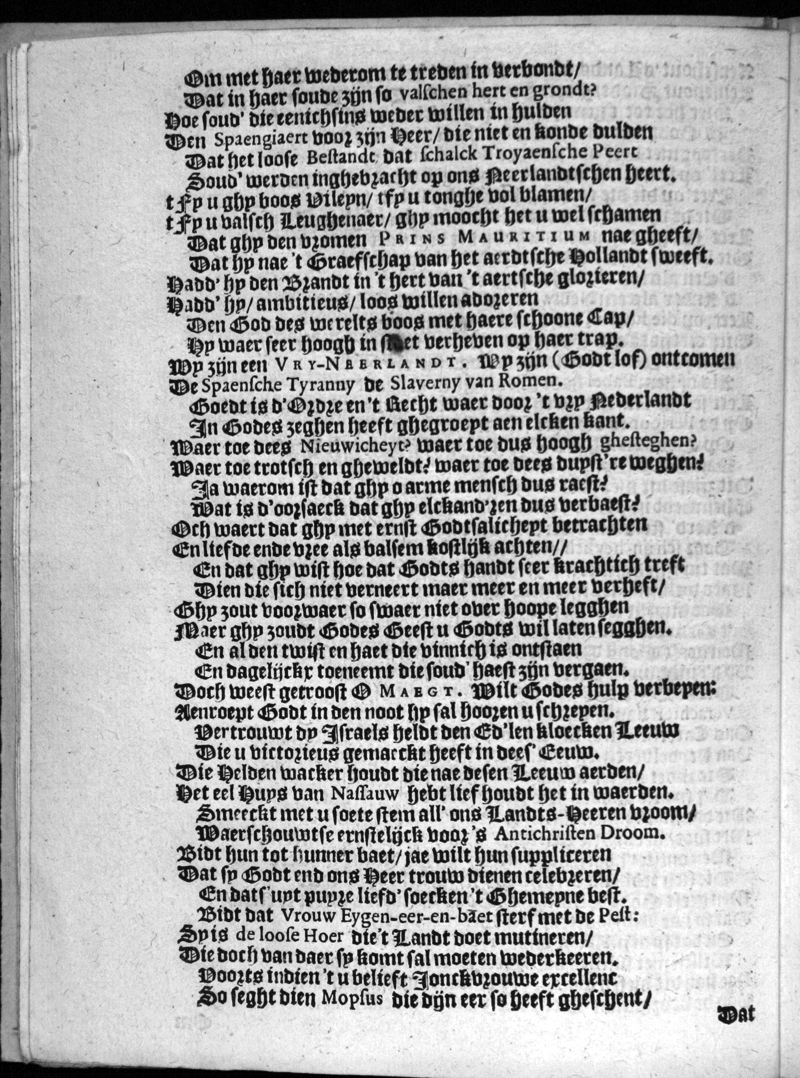 Om met haer wederom te treden in verbondt/
Dat in haer soude zijn so valschen hert en grondt?
Hoe soud' die eenichsins weder willen in hulden
Den Spaengiaert voor zijn Heer/ die niet en konde dulden
Dat het loose Bestandt dat schalck Troyaensche Peert
Soud' werden inghebracht op ons Neerlandtschen heert.
tFy u ghy boos Vileyn/ tfy u tonghe vol blamen/
tFy u valsch Leughenaer/ ghy moocht het u wel schamen
Dat ghy den vromen PRINS MAURITIUM nae gheeft/
Dat hy nae 't Graefschap van het aerdtsche Hollandt sweeft.
Hadd' hy den Brandt in 't hert van 't aertsche glorieren/
Hadd' hy/ ambitieus/ loos willen adoreren
Den God des werelts boos met haere schoone Cap/
Hy waer seer hoogh in met verheven op haer trap.
Wy zijn een VRY-NEERLANDT. Wy zijn (Godt lof) ontcomen
De Spaensche Tyranny de Slaverny van Romen.
Goedt is d'Ordre en 't Recht waer door 't vry Nederlandt
In Godes zeghen heeft ghegroept aen elcken kant.
Waer toe dees Nieuwicheyt? waer toe dus hoogh ghesteghen?
Waer toe trotsch en gheweldt? waer toe dees duyst're weghen?
Ja waerom ist dat ghy o arme mensch dus raest?
Wat is d'oorsaeck dat ghy elckand'ren dus verbaest?
Och waert dat ghy met ernst Godtsalicheyt betrachten
En liefde ende vree als balsem kostlijk achten//
En dat ghy wist hoe dat Godts handt seer krachtich treft
Dien die sich niet verneert maer meer en meer verheft/
Ghy zout voorwaer so swaer niet over hoope legghen
Maer ghy zoudt Godes Geest u Godts wil laten segghen.
En al den twist en haet die vinnich is ontstaen
En dagelijckx toeneemt die soud' haest zijn vergaen.
Doch weest getroost O MAEGT. Wilt Godes hulp verbeyen:
Aenroept Godt in den noot hy sal hooren u schreyen.
Vertrouwt dy Israels heldt den Ed'len kloecken Leeuw
Die u victorieus gemaeckt heeft in dees' Eeuw.
Die Helden wacker houdt die nae desen Leeuw aerden/
Het eel Huys van Nassauw hebt lief houdt het in waerden.
Smeeckt met u soete stem all' ons Landts-Heeren vroom/
Waerschouwtse ernstelijck voor 's Antichristen Droom.
Bidt hun tot hunner baet/ jae wilt hun suppliceren
Dat sy Godt end ons Heer trouw dienen celebreren/
En dats' uyt puyre liefd' soecken 't Ghemeyne best.
Bidt dat Vrouw Eygen-eer-en-baet sterf met de Pest:
Sy is de loose Hoer die't Landt doet mutineren/
Die doch van daer sy komt sal moeten wederkeeren.
Voorts indien 't u belieft Jonckvrouwe excellent
So seght dien Mopsus die dijn eer so heeft gheschent/
Dat